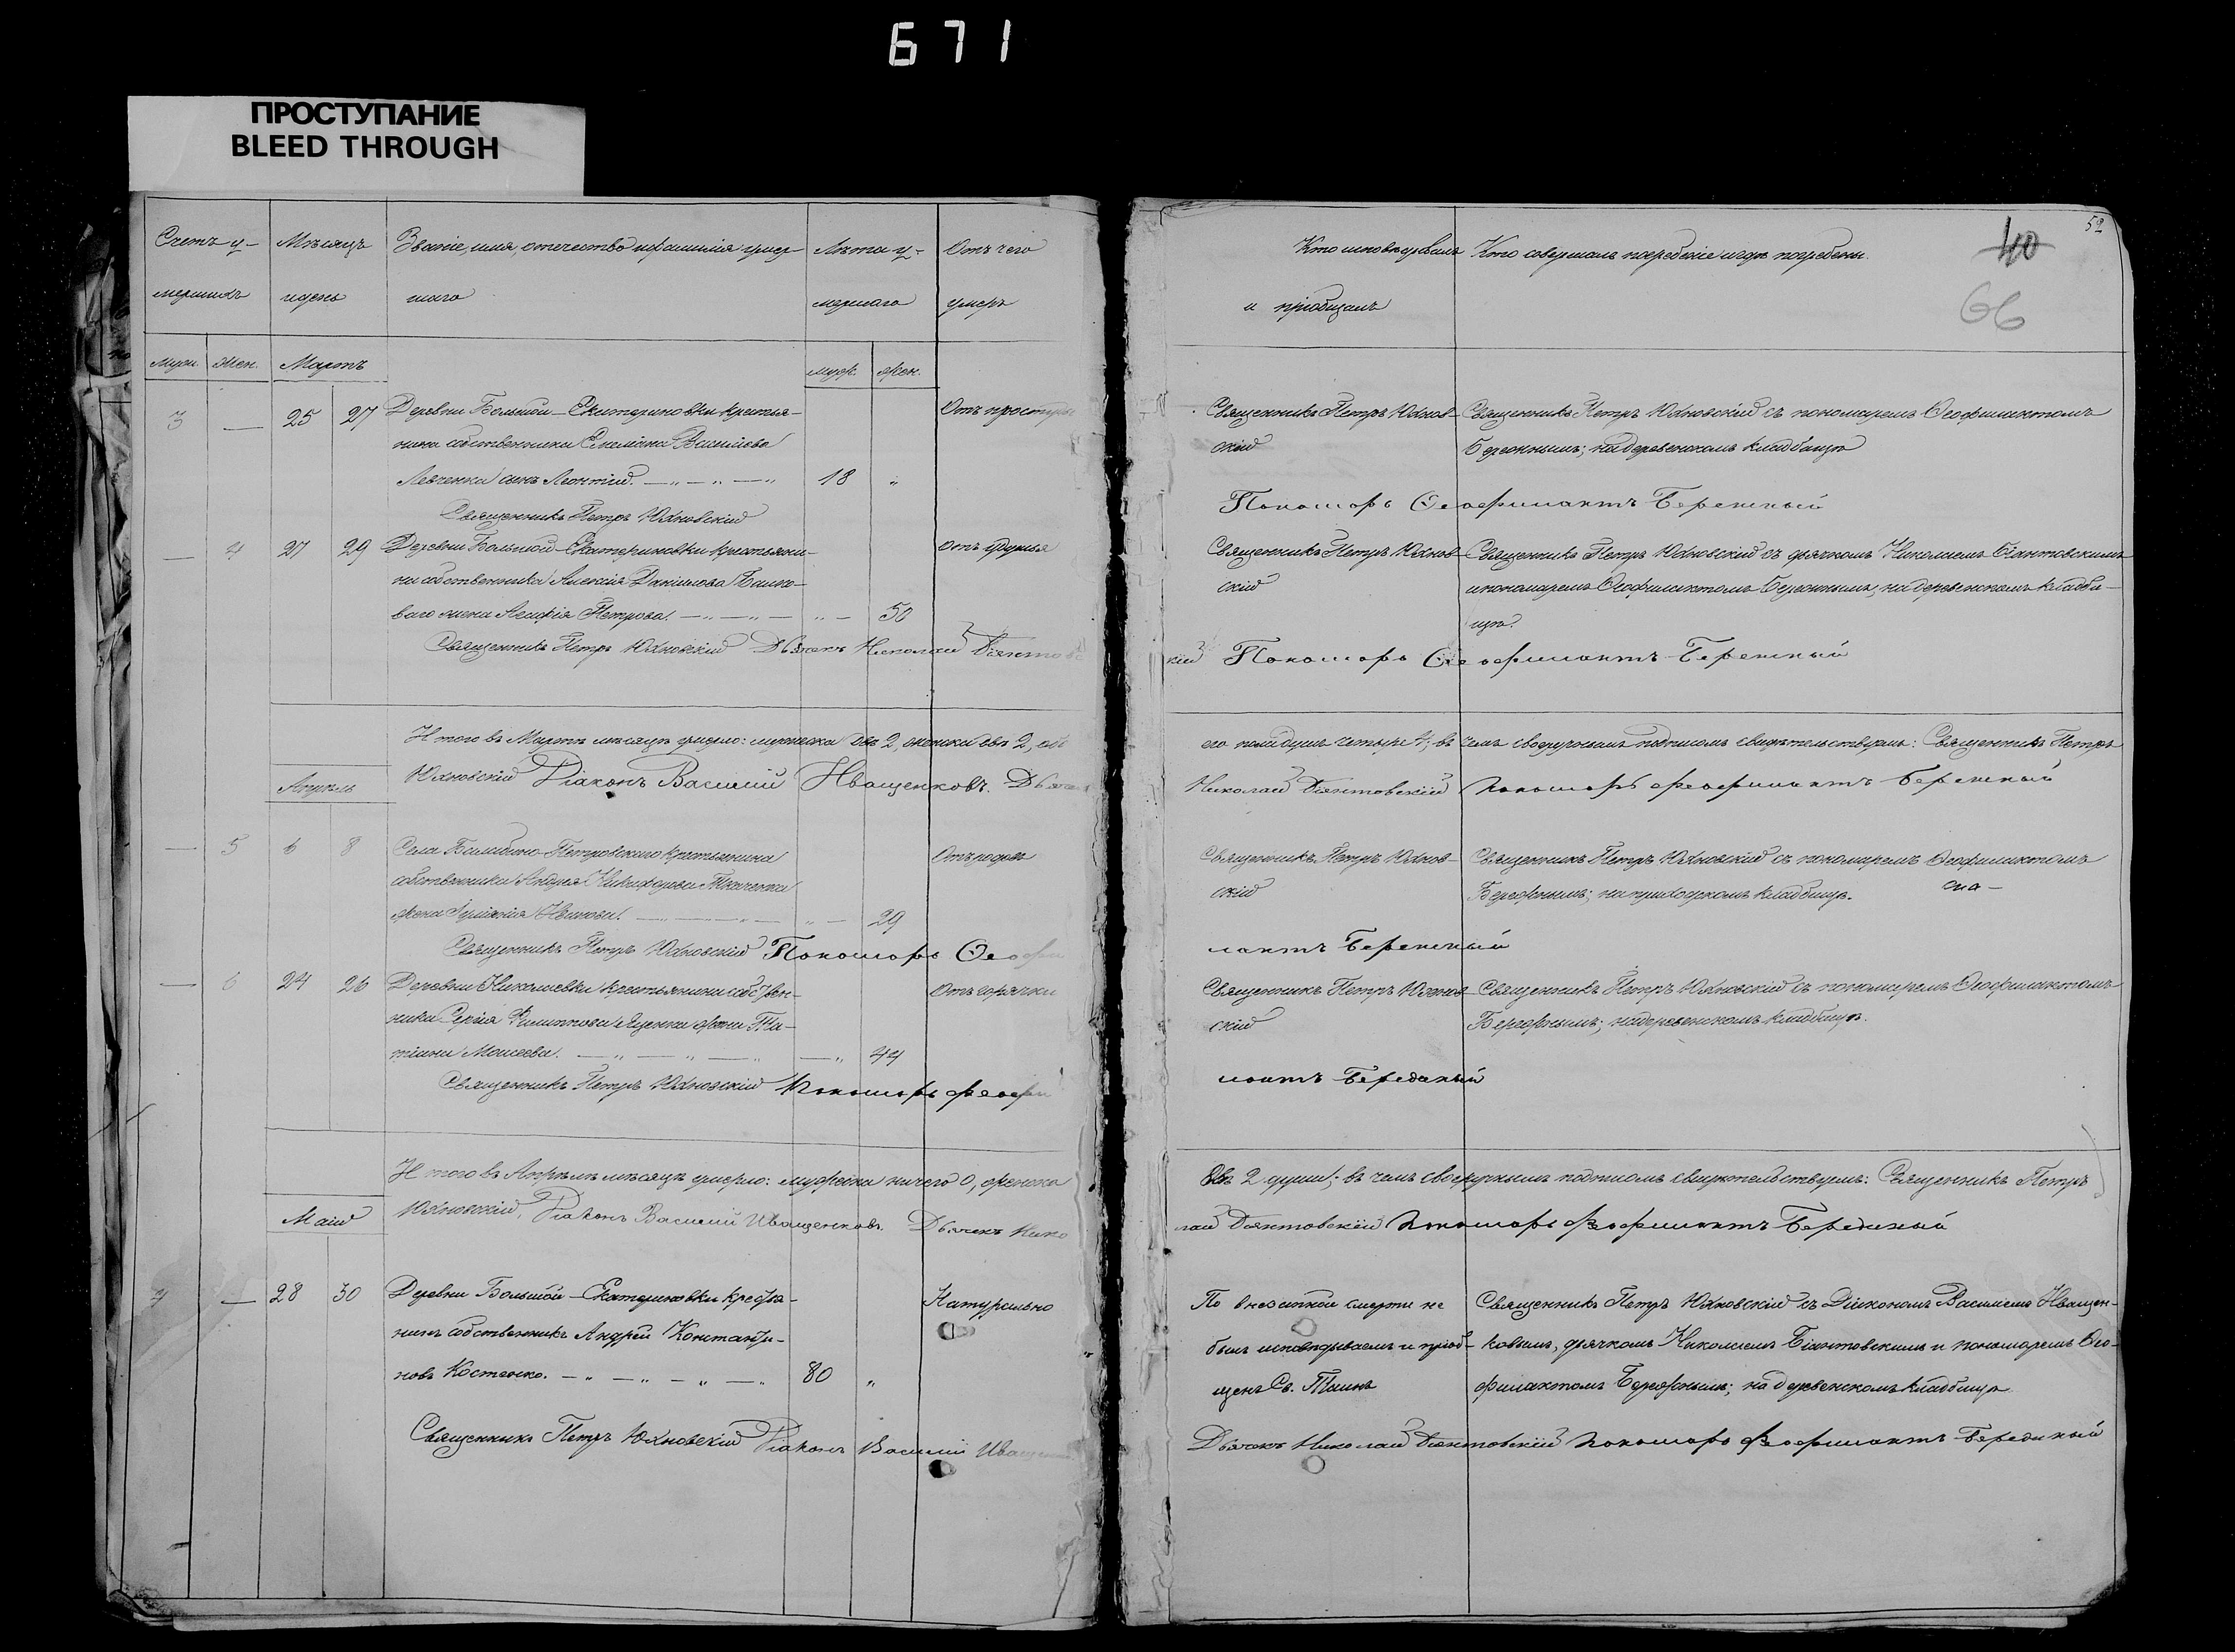 671
ПРОСТУПАНИЕ
BLEED THROUGH
Счетъ у-
мершихъ
Мѣсяцъ
и день
Званіе, имя, отчество и фамилія умер-
шаго
Лѣта у-
мершаго
Отъ чего
умеръ
Муж. Жен. Мартъ
муж. жен.
3 — 25 27 Деревни Большой-Екатериновки крестья-
нина собственника Васильева
Левченка сынъ Леонтій. 18 „
Отъ простуды
Священникъ Петръ Юхновскій
— 4 27 29 Деревни Большой-Екатериновки крестьяни-
на собственника Алексія Данилова
ваго жена Агафія Петрова. 50
Священникъ Петръ Юхновскій Дьячекъ Николай Бѣянтовс
Итого въ Мартѣ мѣсяцѣ умерло: мужеска два 2, женска два 2, обо
Юхновскій Діаконъ Василій Иващенковъ. Дьячекъ
Апрѣль
— 5 6 8 Села Петровскаго крестьянина
собственника Андрея Никифорова Ткаченка
жена Иванова. 29
Отъ родовъ
Священникъ Петръ Юхновскій Пономарь Өеофи
— 6 24 26 Деревни Николаевки крестьянина собствен-
ника Сергія Филиппова Яценка жена Та-
тіана Моисеева. 44
Отъ горячки
Священникъ Петръ Юхновскій Пономарь Феофи
Итого въ Апрѣлѣ мѣсяцѣ умерло: мужеска ничего 0, женска
Юхновскій, Діаконъ Василій Иващенковъ Дьячекъ Нико
Маій
— 28 30 Деревни Большой-Екатериновки крестья-
нинъ собственникъ Андрей Константи-
новъ Костенко. 80 „
Натурально
Священникъ Петръ Юхновскій Діаконъ Василій Иващен
Кто исповѣдывалъ
и пріобщалъ
Кто совершалъ погребеніе и гдѣ погребены.
40
52
66
Священникъ Петръ Юхнов-
скій
Священникъ Петръ Юхновскій съ пономаремъ Өеофилактомъ
Бережнымъ; на деревенскомъ кладбищѣ
Пономарь Өеофилактъ Бережный
Священникъ Петръ Юхнов-
скій
Священникъ Петръ Юхновскій съ дьячкомъ Николаемъ Біантовскимъ
и пономаремъ Өеофилактомъ Бережнымъ, на деревенскомъ кладби-
щѣ.
кій Пономарь Өеофилактъ Бережный
его пола душъ четыре 4; въ чемъ своеручнымъ подписомъ свидѣтельствуемъ: Священникъ Петръ
Николай Бѣянтовскій Пономарь Феофилактъ Бережный
Священникъ Петръ Юхнов-
скій
Священникъ Петръ Юхновскій съ пономаремъ Өеофилактомъ
Бережнымъ; на приходскомъ кладбищѣ.
лактъ Бережный
Священникъ Петръ Юхнов-
скій
Священникъ Петръ Юхновскій съ пономаремъ Өеофилактомъ
Бережнымъ; на деревенскомъ кладбищѣ.
лактъ Бережный
двѣ 2 души; въ чемъ своеручнымъ подписомъ свидѣтельствуемъ: Священникъ Петръ
лай Бѣянтовскій Пономарь Феофилактъ Бережный
По внезапной смерти не
былъ исповѣдываемъ и пріоб-
щенъ Св. Таинъ
Священникъ Петръ Юхновскій съ Діакономъ Василіемъ Иващен-
ковымъ, дьячкомъ Николаемъ Біантовскимъ и пономаремъ Өео-
филактомъ Бережнымъ; на деревенскомъ кладбищѣ
Дьячекъ Николай Бѣянтовскій Пономарь Феофилактъ Бережный